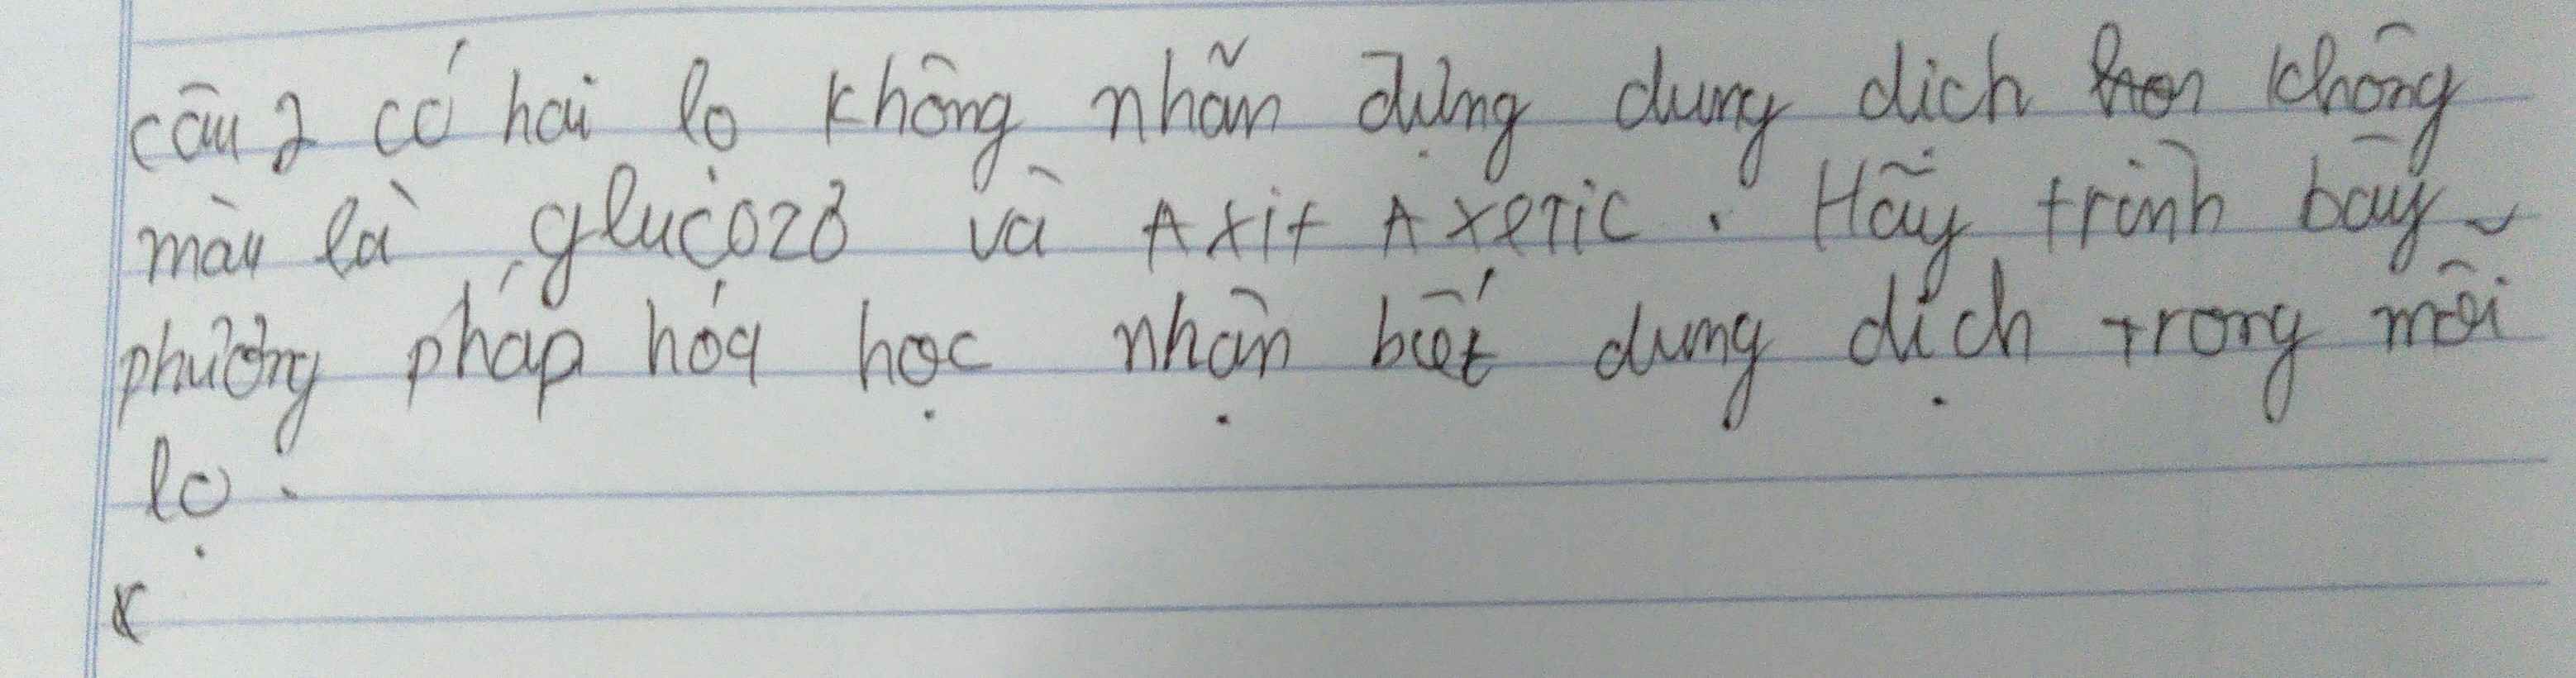 câu 2 có hai lọ không nhãn đựng dung dich không
màu là glucozơ và Axit Axetic. Hãy trình bày
phương pháp hóa học nhận biết dung dịch trong mỗi
lọ.